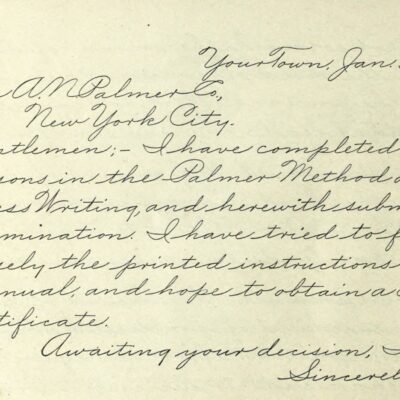 Your Town, Jan.
A. N. Palmer Co.,
New York City.
tlemen;- I have completed
sons in the Palmer Method
ess Writing, and herewith subm
mination. I have tried to f
sely the printed instructions
nual, and hope to obtain a
tificate.
Awaiting your decision, I
Sincerel